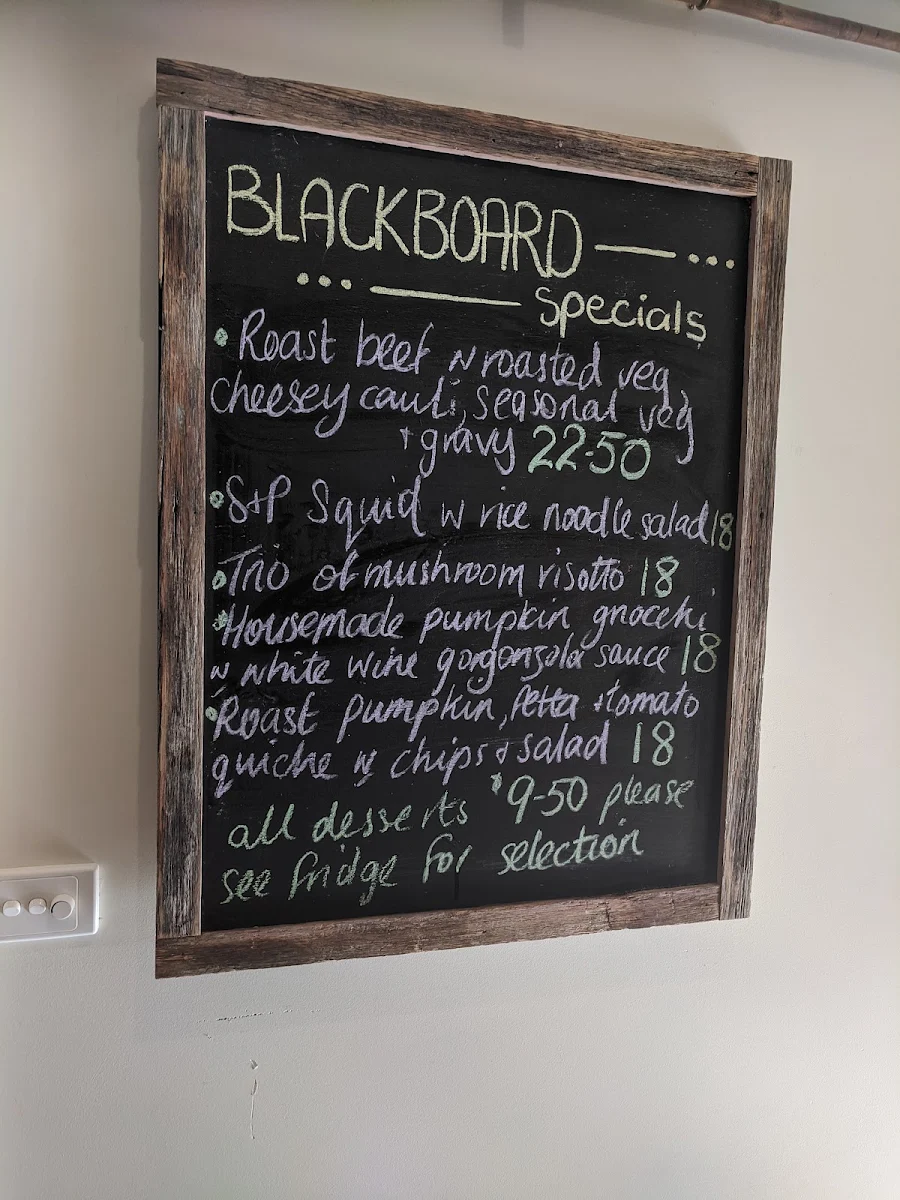 BLACKBOARD
Specials
Roast beef w roasted veg
cheesey cauli, seasonal veg
+ gravy 22-50
S+P Squid w rice noodle salad 18
Trio of mushroom risotto 18
Housemade pumpkin gnocchi
w white wine gorgonzola sauce 18
Roast pumpkin, fetta + tomato
quiche w chips + salad 18
all desserts $9-50 please
see fridge for selection